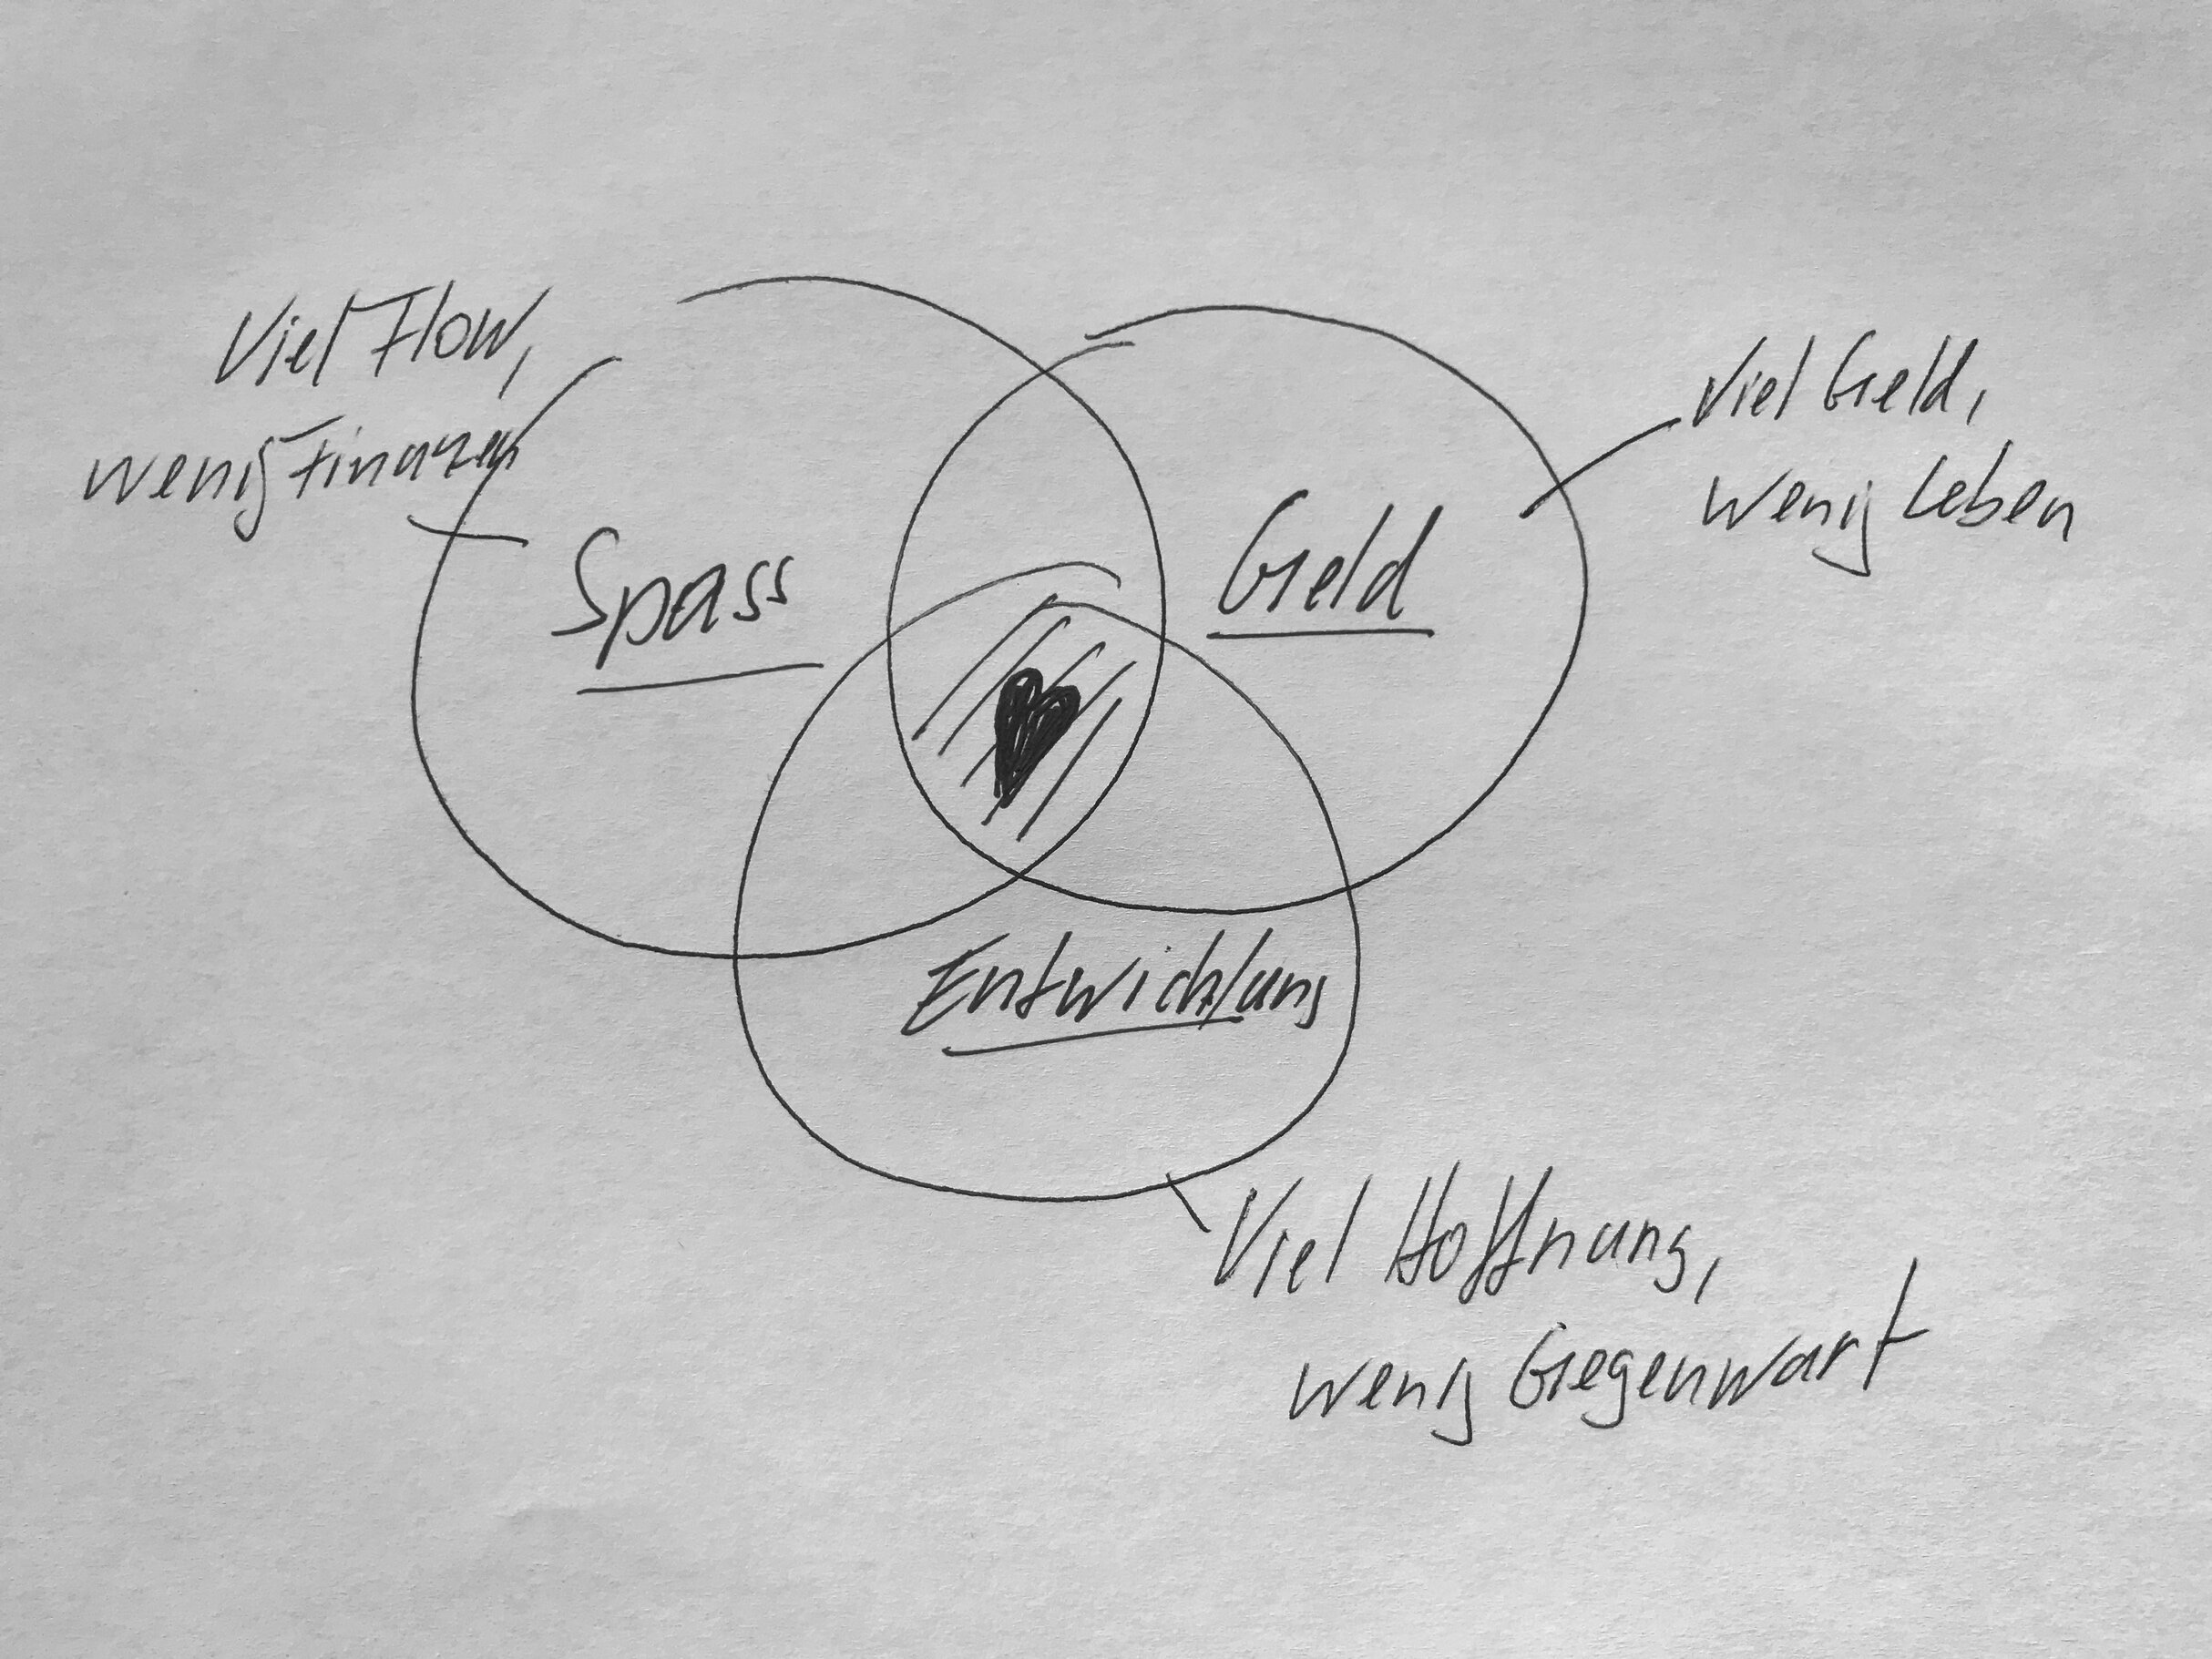 Viel Flow,
wenig Finanzen
Spass
Viel Geld,
wenig Leben
Geld
Entwicklung
Viel Hoffnung,
wenig Gegenwart